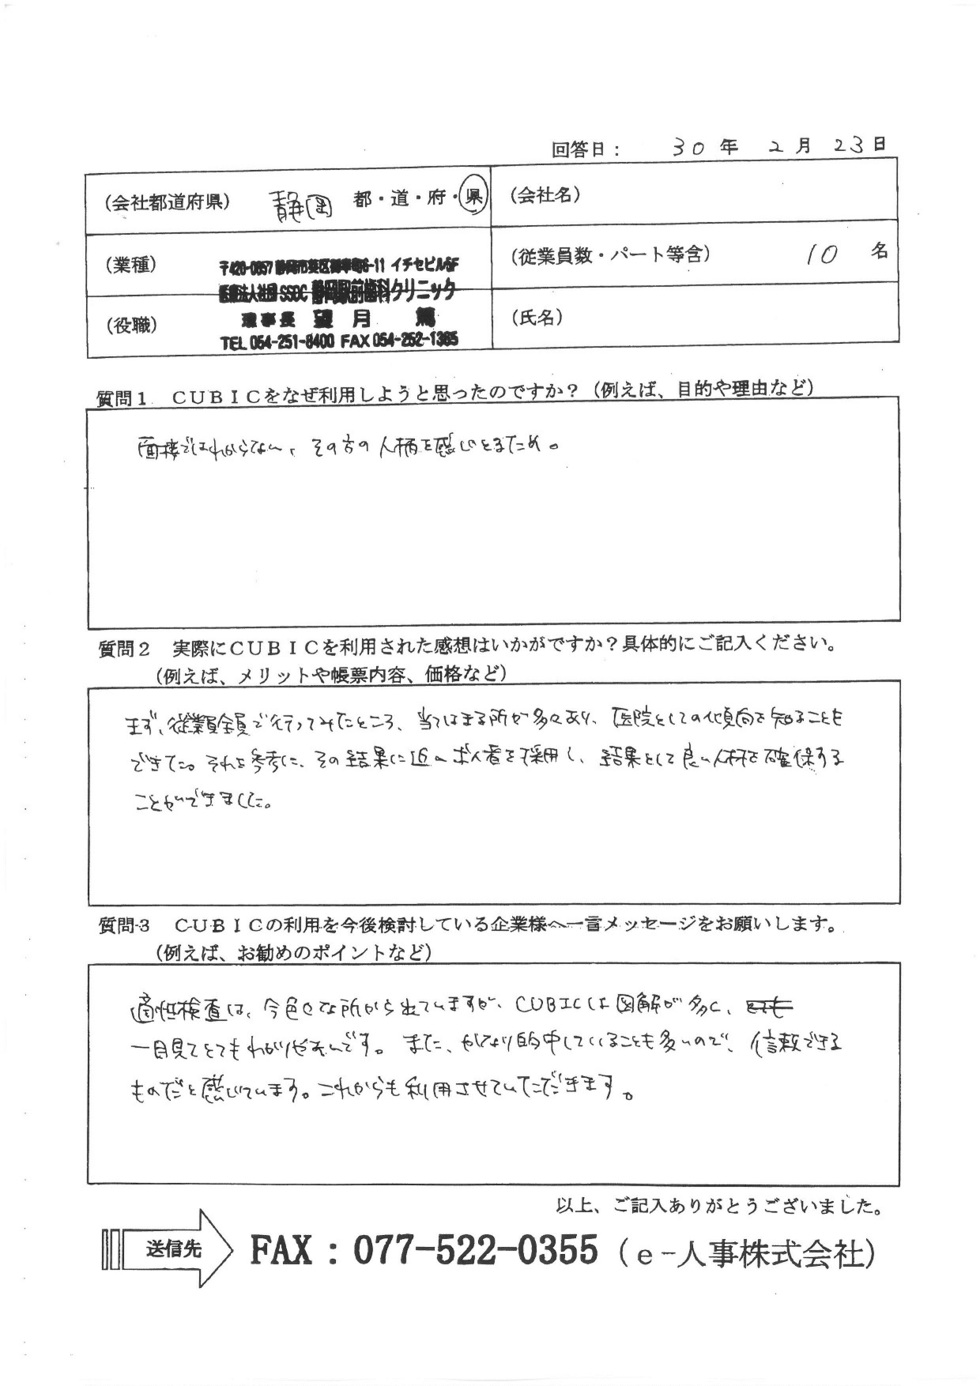 回答日： 30年 2月 23日
(会社都道府県) 静岡 都・道・府・県 (会社名)
(業種) (従業員数・パート等含) 10 名
〒420-0857 静岡市葵区御幸町6-11 イチセビル5F
医療法人社団SSDC 静岡駅前歯科クリニック
理事長 望月 篤
TEL 054-251-8400 FAX 054-252-1365
(役職) (氏名)
質問１ ＣＵＢＩＣをなぜ利用しようと思ったのですか？（例えば、目的や理由など）
面接ではわからない、その方の人柄を感じとるため。
質問２ 実際にＣＵＢＩＣを利用された感想はいかがですか？具体的にご記入ください。
（例えば、メリットや帳票内容、価格など）
まず、従業員全員で行ってみたところ、当てはまる所が多々あり、医院としての傾向を知ることも
できた。それを参考に、その結果に近い求人者を採用し、結果として良い人材を確保する
ことができました。
質問3 ＣＵＢＩＣの利用を今後検討している企業様へ一言メッセージをお願いします。
（例えば、お勧めのポイントなど）
適性検査は、今色々な所から出ていますが、CUBICは図解が多く、
一目見てとてもわかりやすいです。また、かなり的中していることも多いので、信頼できる
ものだと感じています。これからも利用させていただきます。
以上、ご記入ありがとうございました。
送信先 FAX：077-522-0355（e-人事株式会社）